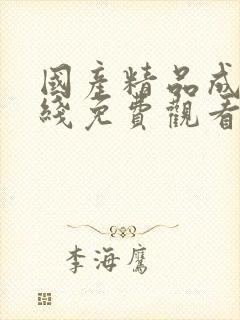 國產精品成
綫免費觀看
李海鷹